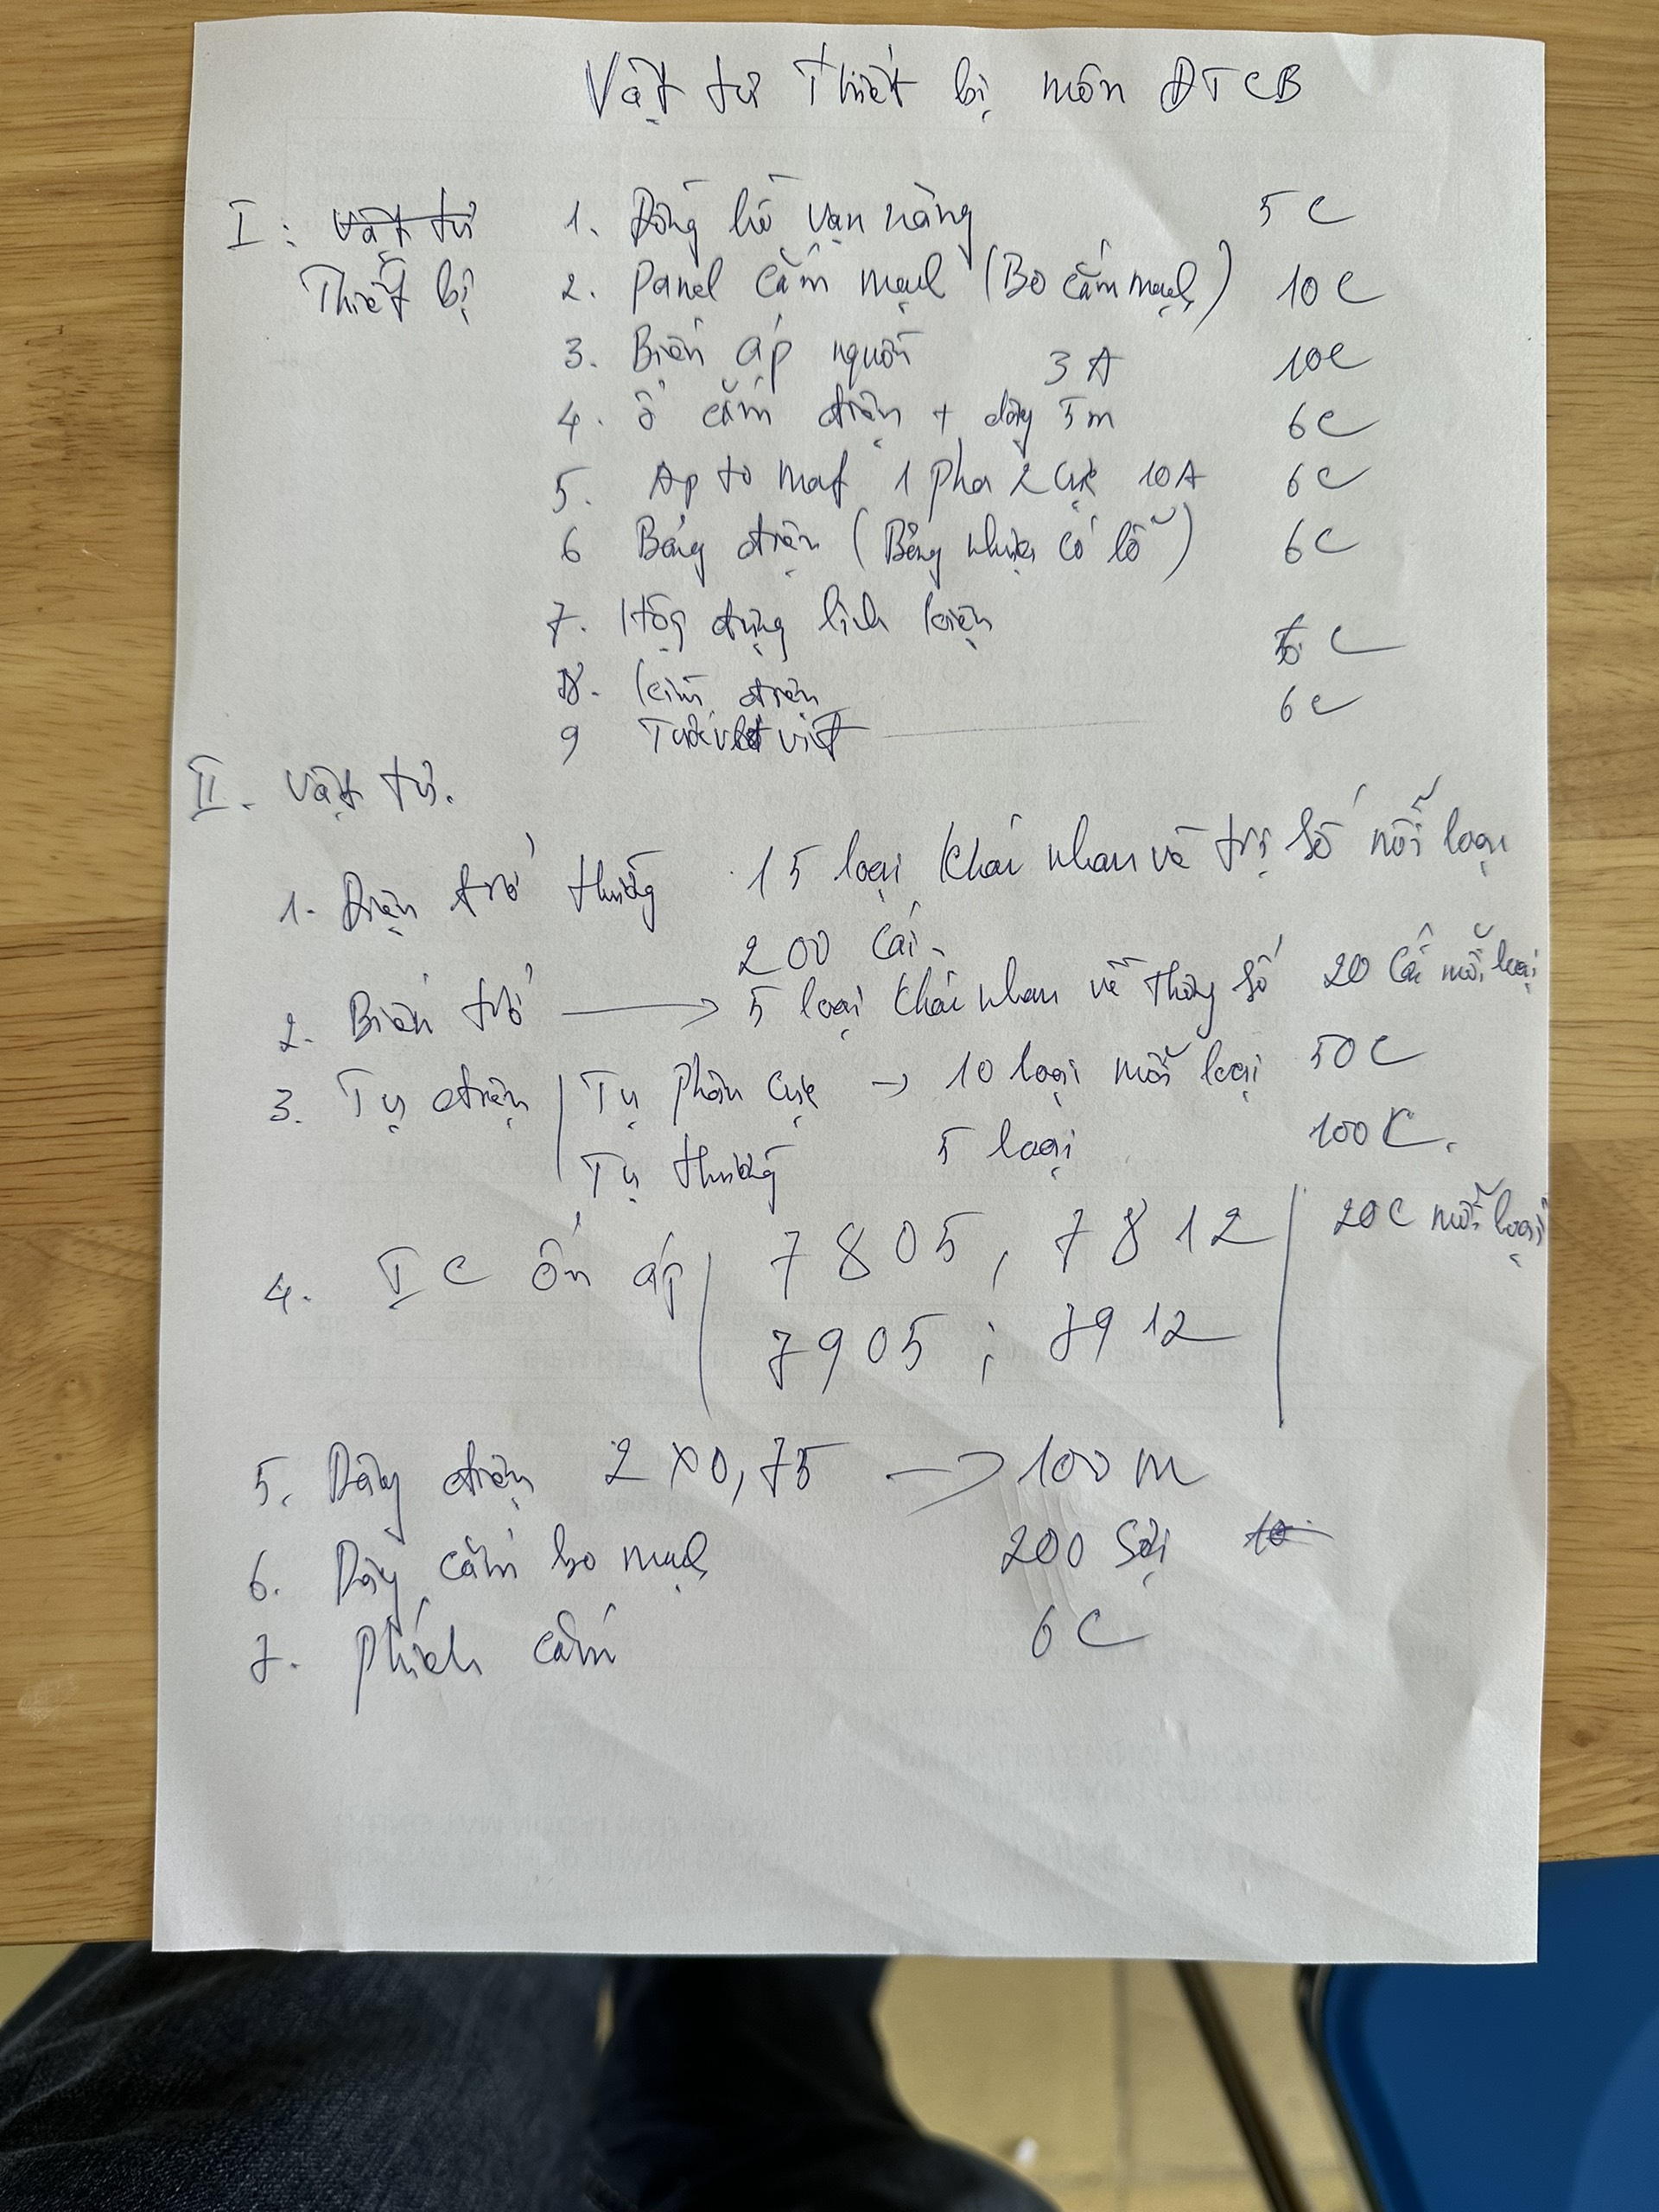 Vật tư Thiết bị môn ĐTCB
I: Vật tư 1. Đồng hồ vạn năng 5C
Thiết bị 2. Panel cắm mạch (Bo cắm mạch) 10C
3. Biến áp nguồn 3A 10C
4. Ổ cắm điện + dây 5m 6C
5. Aptomat 1 pha 2 cực 10A 6C
6 Bảng điện (Bảng nhựa có lỗ) 6C
7. Hộp đựng linh kiện C
8. Kìm điện 6C
9 Tuốc vít
II. Vật tư.
1. Điện trở thường 15 loại khác nhau về trị số mỗi loại
200 cái.
2. Biến trở → 5 loại khác nhau về thông số 20 cái mỗi loại
3. Tụ điện Tụ phân cực → 10 loại mỗi loại 50C
Tụ thường 5 loại 100C.
4. IC ổn áp 7805, 7812 20C mỗi loại
7905; 7912
5. Dây điện 2x0,75 → 100m
6. Dây cắm bo mạch 200 Sợi 10
7. Phích cắm 6C